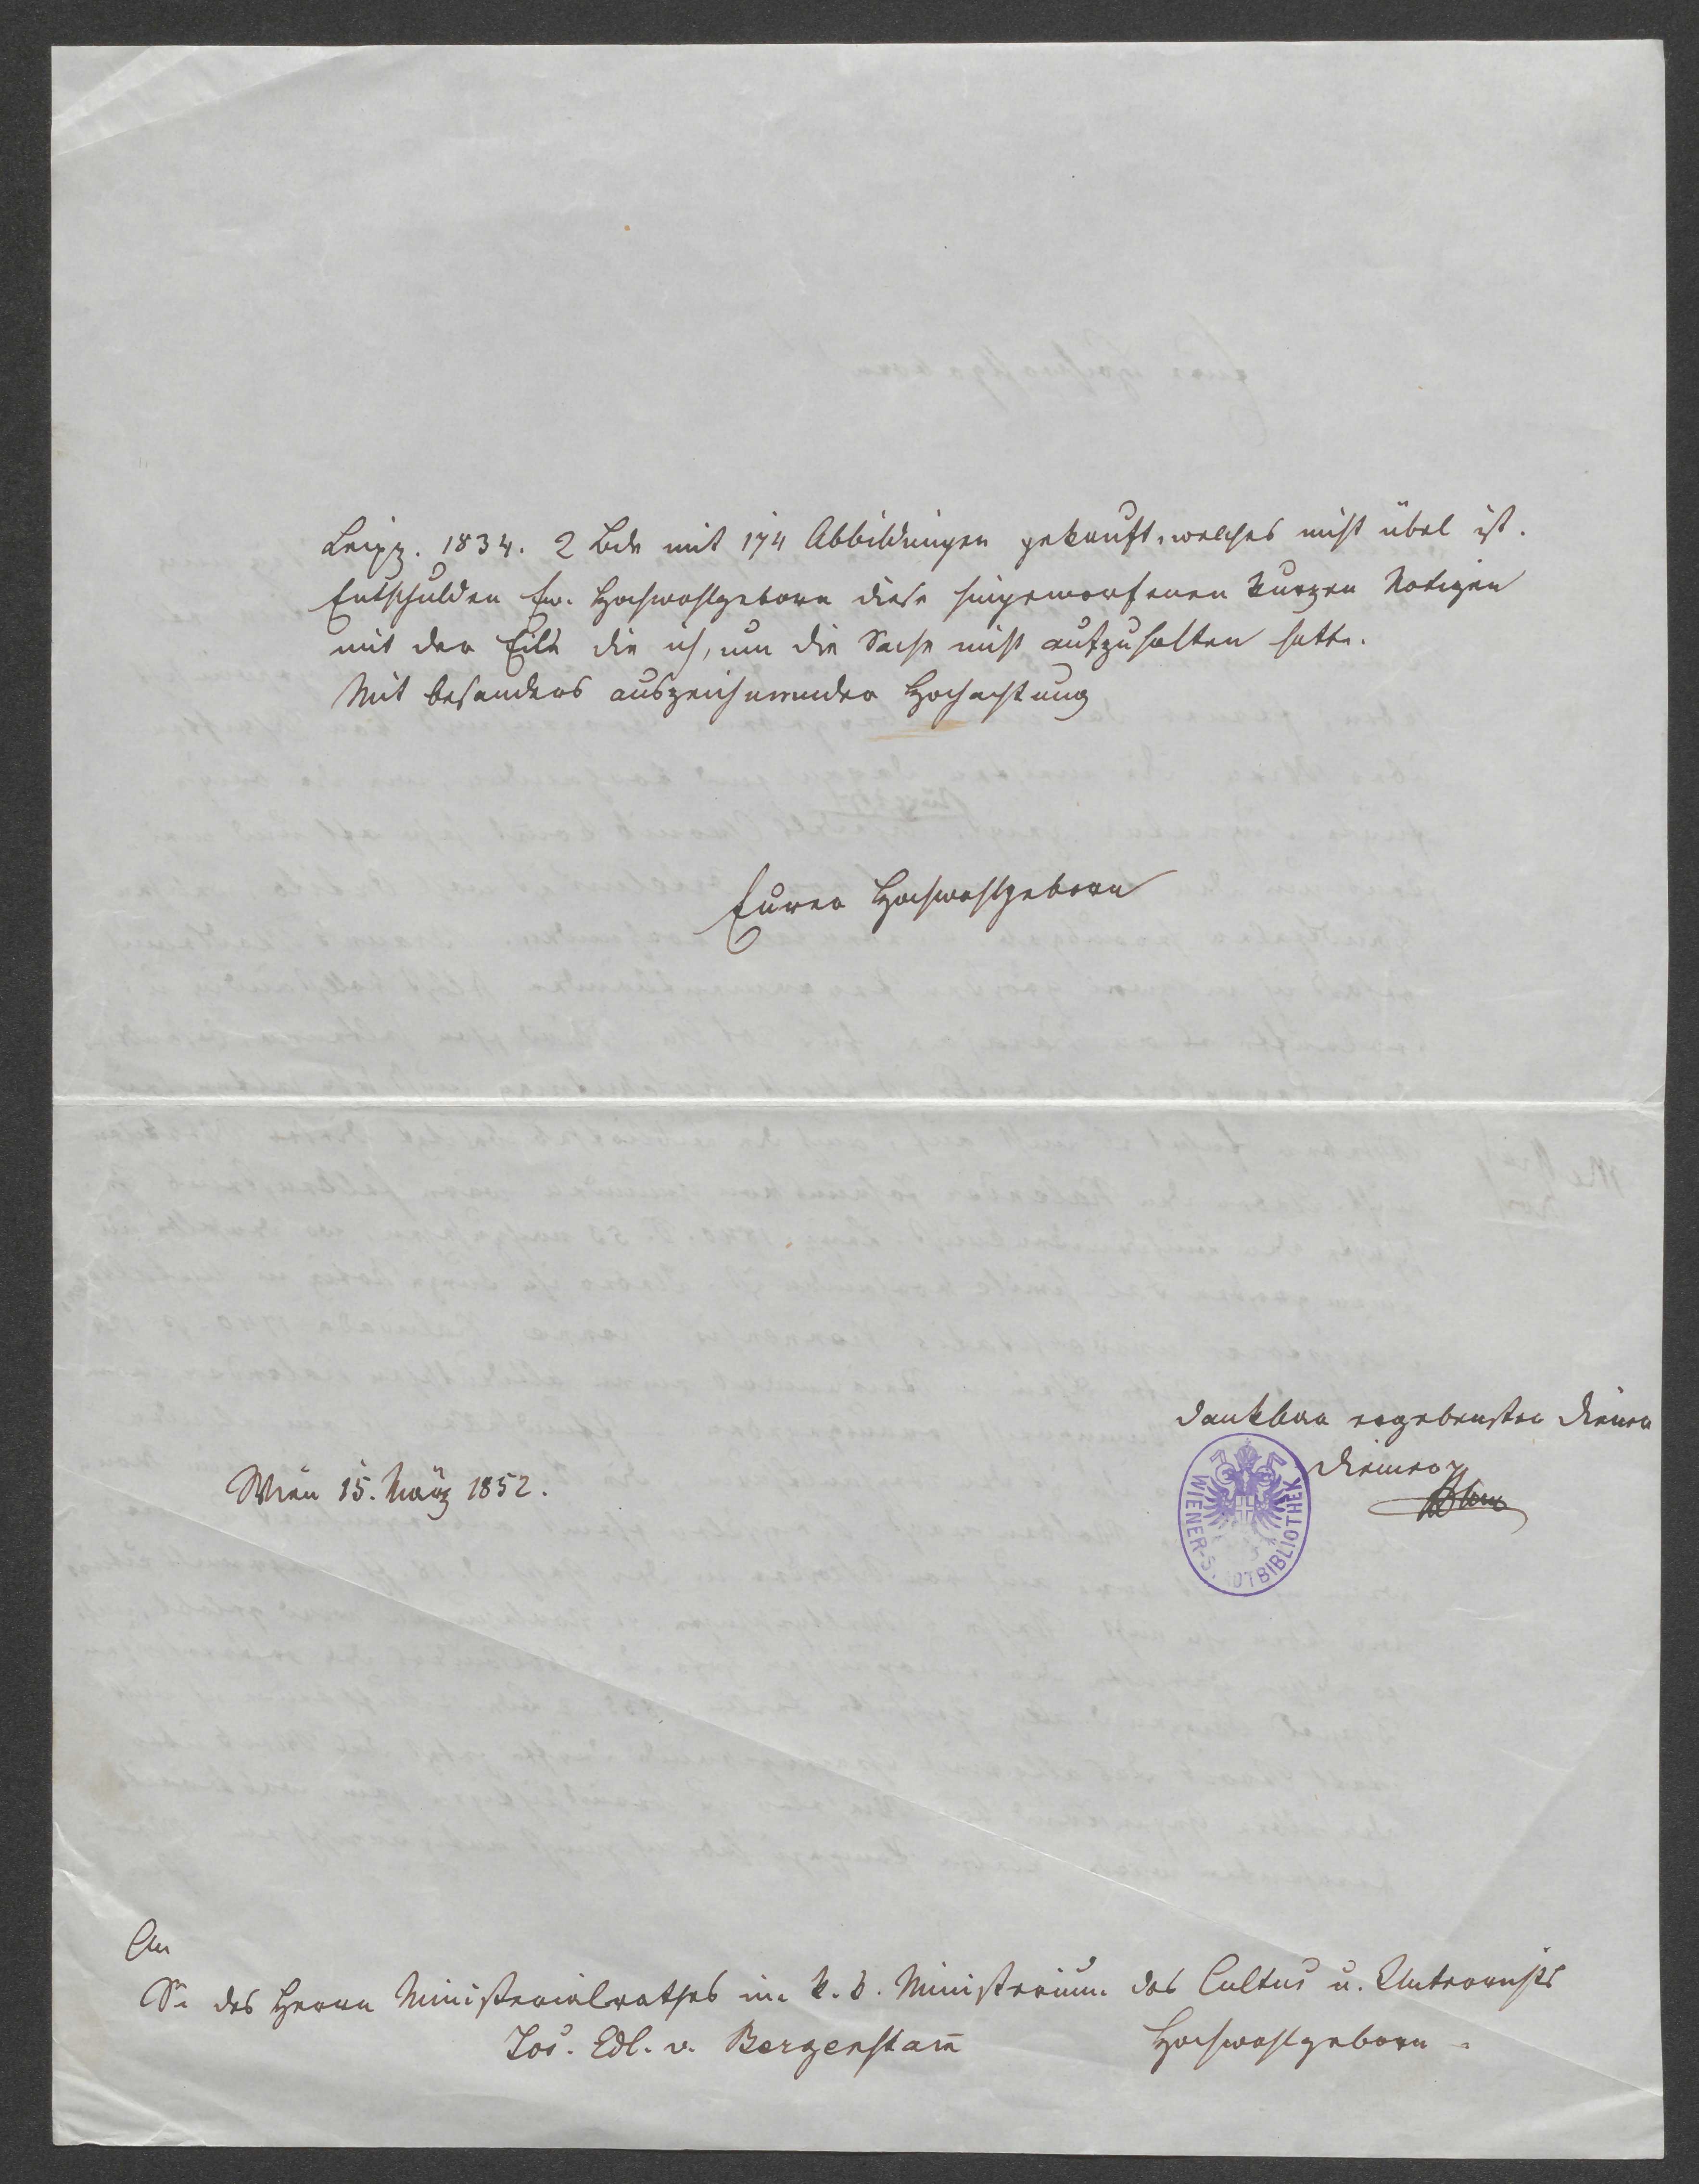 Leipz. 1834. 2 Bde mit 174 Abbildungen gekauft, welches nicht übel ist.
Entschulden Ew. Hochwohlgeborn diese hingeworfenen kurzen Notizen
mit der Eile die ich, um die Sache nicht aufzuhalten hatte.
Mit besonders auszeichnender Hochachtung
Eurer Hochwohlgeborn
dankbar ergebenster Diener
Diemer
Wien 15. März 1852.
WIENER-S. DTBIBLIOTHEK
An
Sr des Herrn Ministerialrathes im k. k. Ministerium des Cultus u. Unterrichts
Jos. Edl. v. Bergenstam̄ Hochwohlgeborn